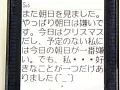 また朝日を見ました。
やっぱり朝日は嫌いで
す。今日はクリスマス
だし、予定のない私に
は今日の朝日が一番嫌
い。でも、私・・・好
きなことが一つだけあ
りました(^_^)